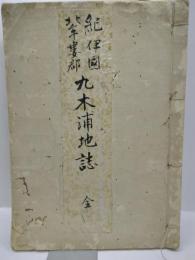 紀伊國
北牟婁郡
九木浦地誌
全